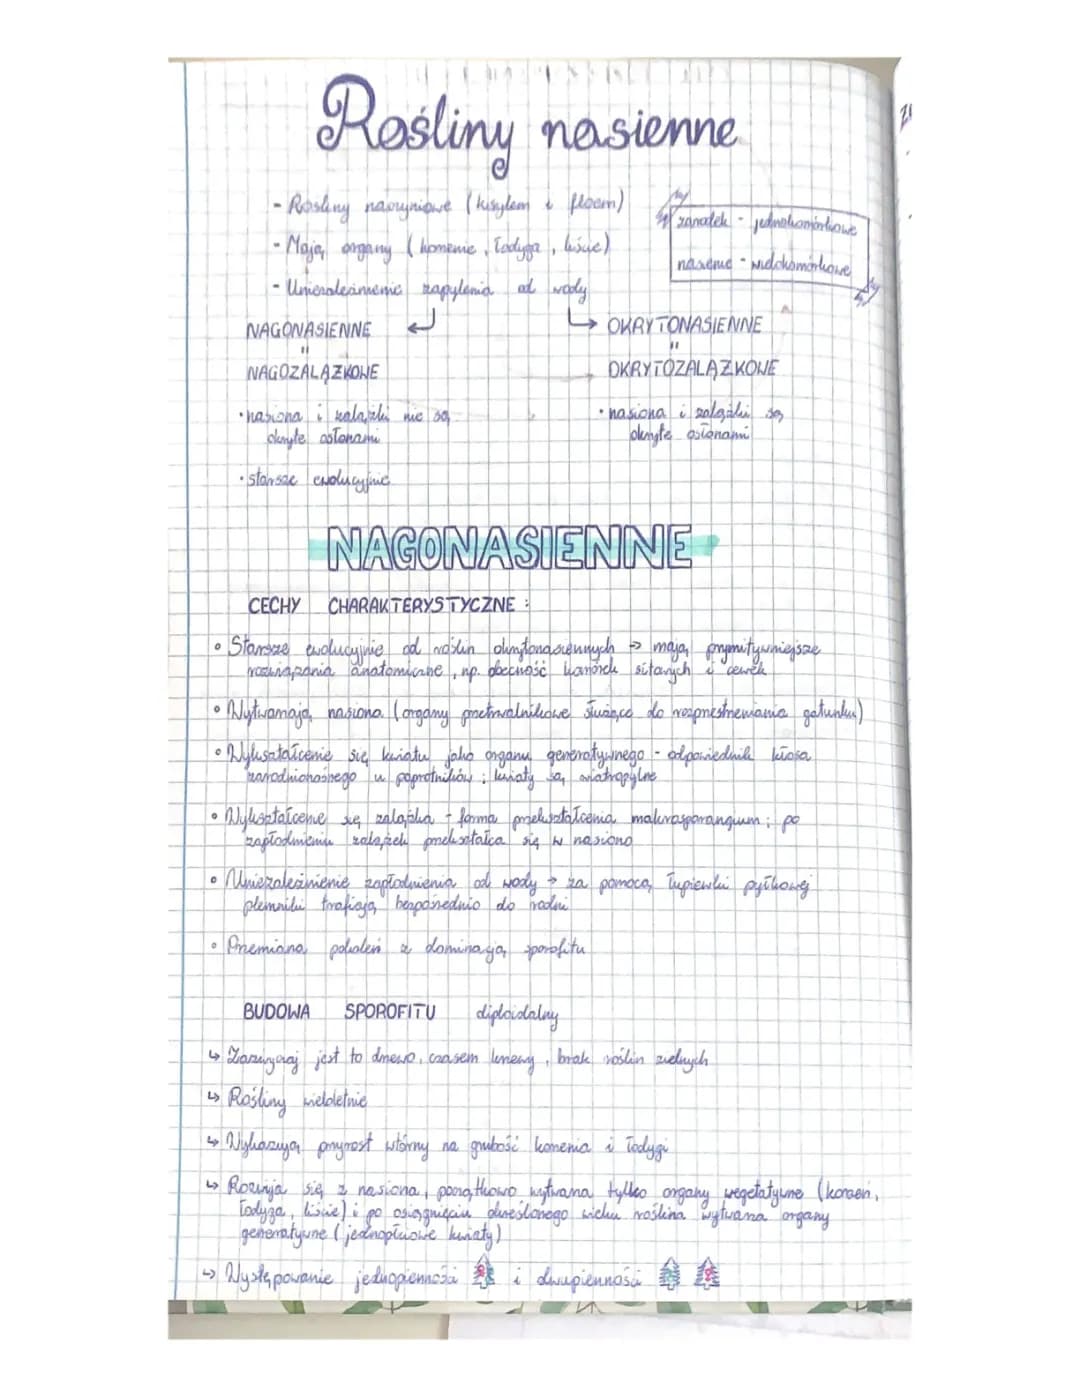 Rośliny nasienne
- Rośliny naczyniowe (ksylem i floem)
- Mają organy (korzenie, łodyga, liście)
- Uniezależnienie zapylenia od wody
zarodek - jednokomórkowe
nasienie - wielokomórkowe
NAGONASIENNE
"
NAGOZALĄŻKOWE
• nasiona i zalążki nie są
okryte osłonami
• starsze ewolucyjnie
OKRYTONASIENNE
"
OKRYTOZALĄŻKOWE
• nasiona i zalążki są
okryte osłonami
NAGONASIENNE
CECHY CHARAKTERYSTYCZNE:
• Starsze ewolucyjnie od roślin okrytonasiennych → mają prymitywniejsze
rozwiązania anatomiczne, np. obecność komórek sitowych i cewek
• Wytwarzają nasiona (organy przetrwalnikowe służące do rozprzestrzeniania gatunku)
• Wykształcenie się kwiatu jako organu generatywnego - odpowiednik kłosa
zarodnionośnego u paprotników; kwiaty są wiatropylne
• Wykształcenie się zalążka - forma przekształcenia makrosporangium; po
zapłodnieniu zalążek przekształca się w nasiono
• Uniezależnienie zapłodnienia od wody → za pomocą łupiewki pyłkowej
plemniki trafiają bezpośrednio do rodni
• Przemiana pokoleń z dominacją sporofitu
BUDOWA SPOROFITU diploidalny
↳ Zazwyczaj jest to drzewo, czasem krzewy, brak roślin zielnych
↳ Rośliny wieloletnie
↳ Wykazują przyrost wtórny na grubość korzenia i łodygi
↳ Rozwija się z nasiona, początkowo wytwarza tylko organy wegetatywne (korzeń,
łodyga, liście) i po osiągnięciu określonego wieku roślina wytwarza organy
generatywne (jednopłciowe kwiaty)
↳ Występowanie jednopienności i dwupienności